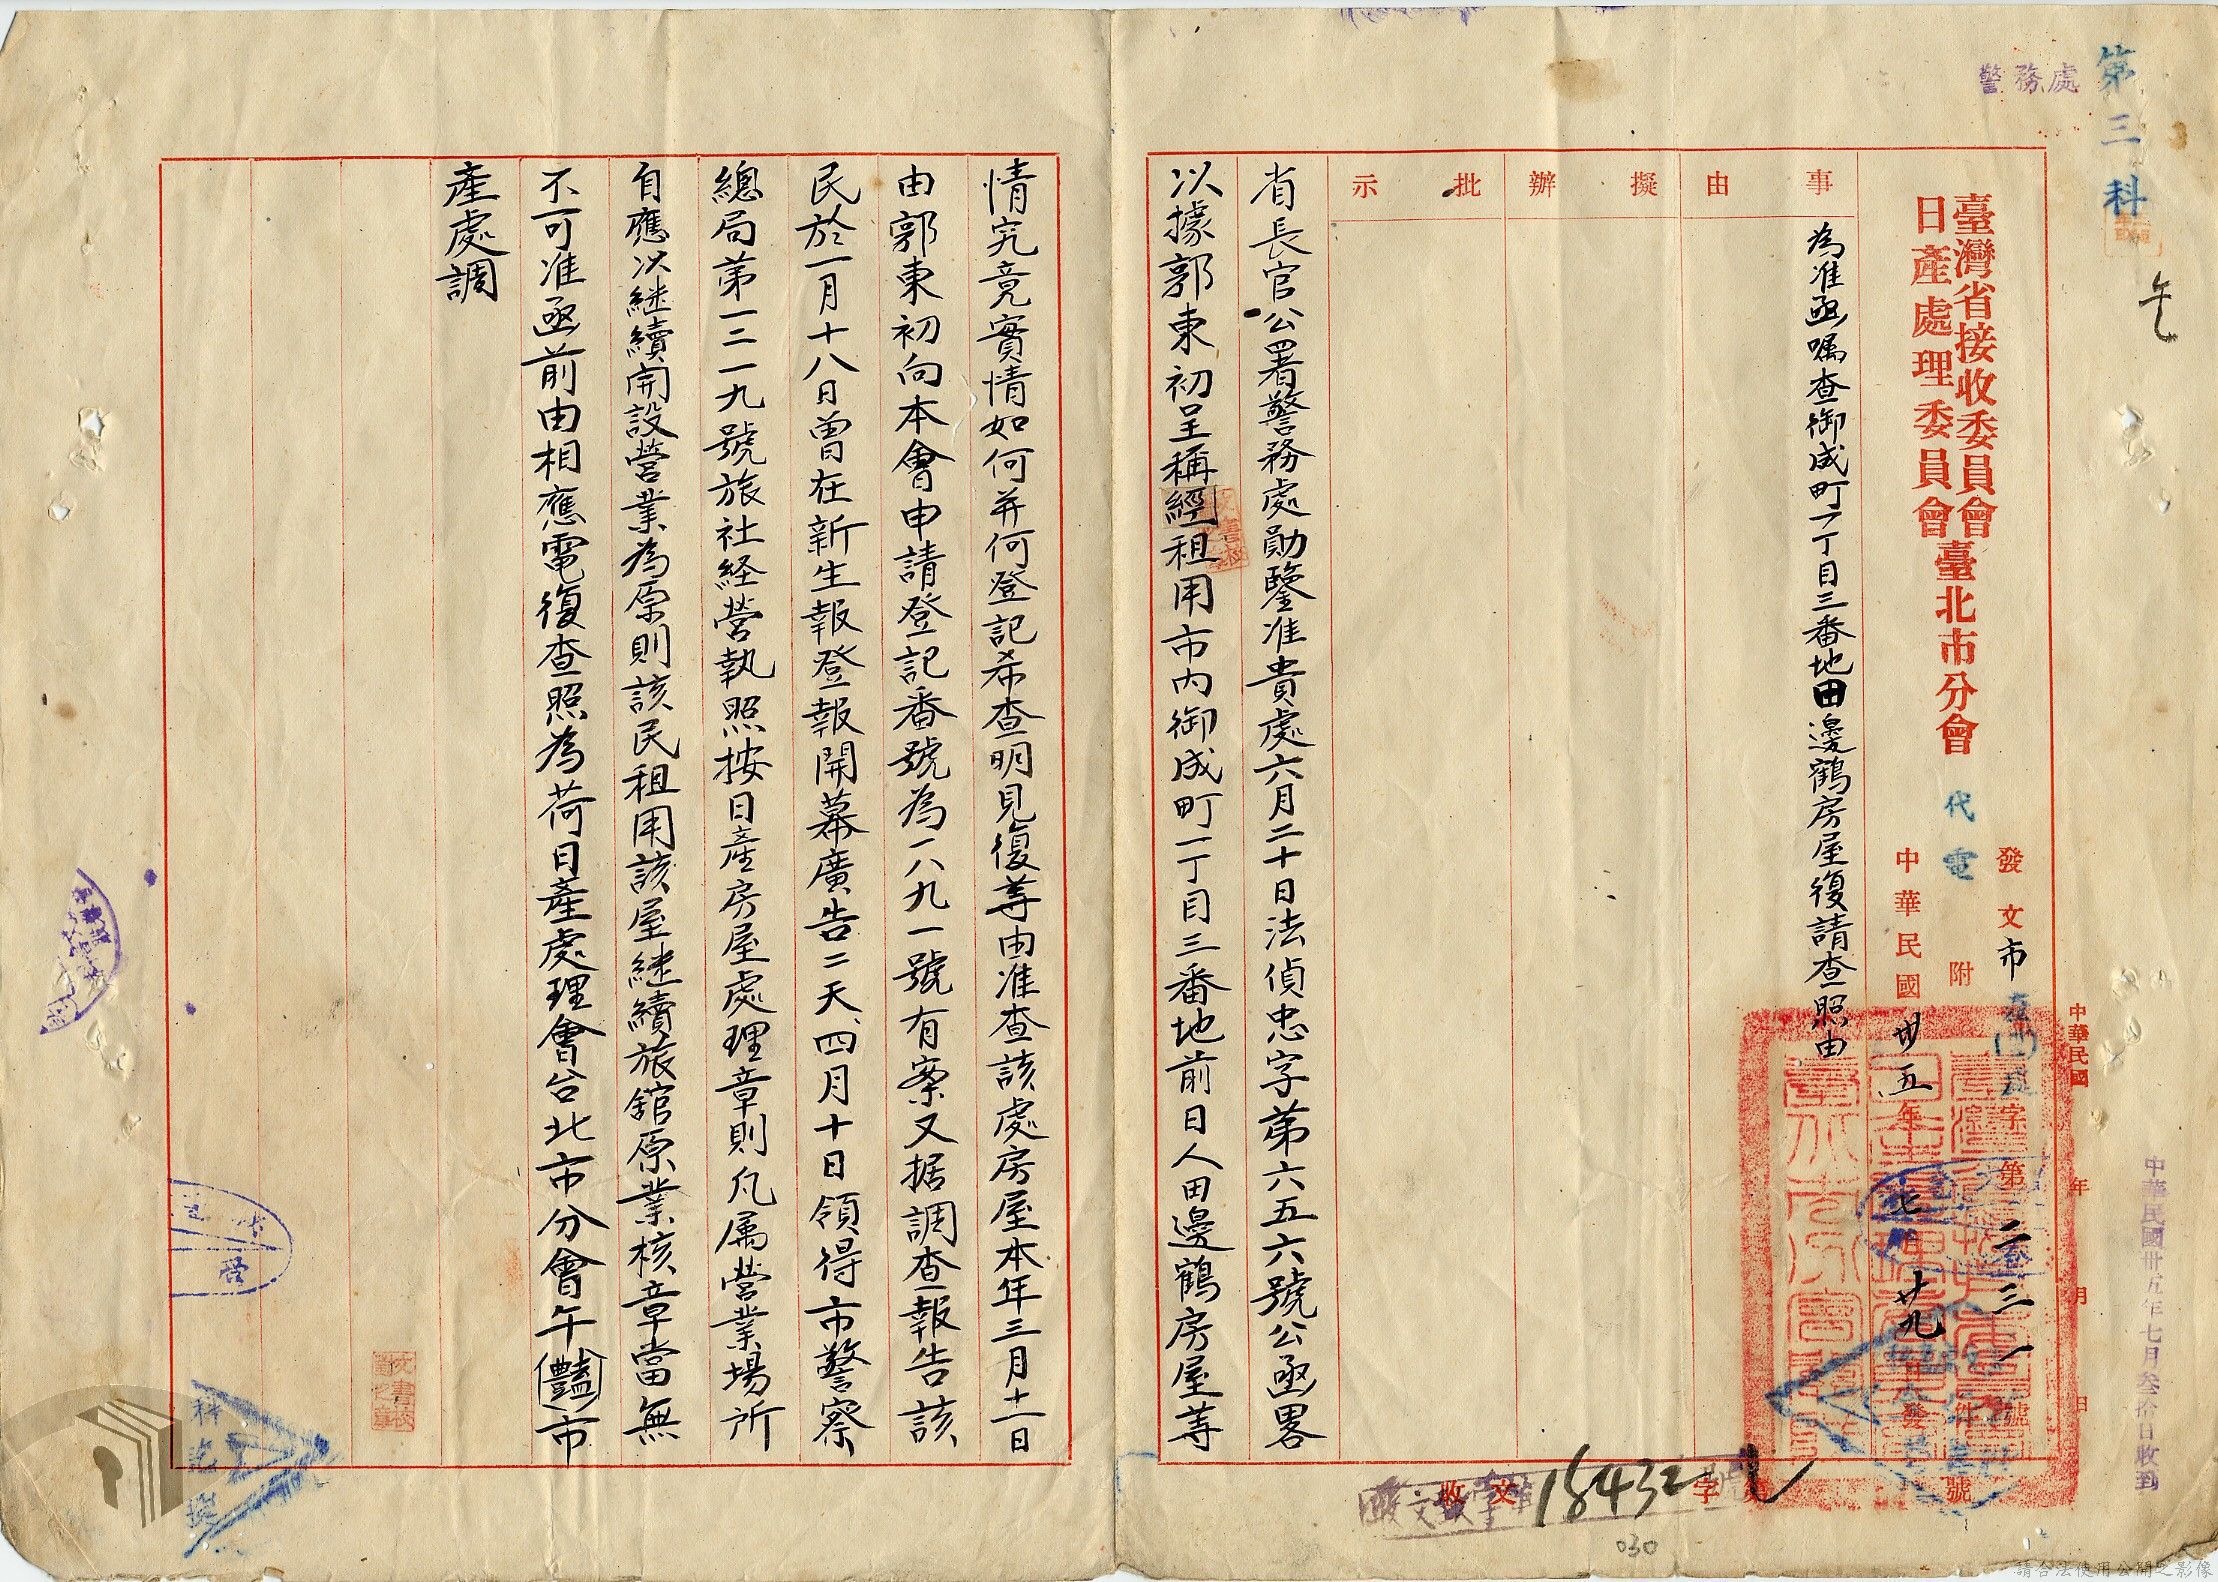 第三科
警務處
臺灣省接收委員會
日產處理委員會
臺北市分會
代電
發文市
字第二三三一號
附件
中華民國卅五年七月廿九
中華民國 年 月 日
中華民國卅五年七月叁拾日收到
事由
擬辦
批示
為准函囑查御成町一丁目三番地田邊鶴房屋復請查照由
省長官公署警務處勛鑒准貴處六月二十日法偵忠字第六五六號公函畧
以據郭東初呈稱經租用市内御成町一丁目三番地前日人田邊鶴房屋等
收文 字
18432
030
情究竟實情如何并何登記希查明見復等由准查該處房屋本年三月十一日
由郭東初向本會申請登記番號為一八九一號有案又据調查報告該
民於一月十八日曽在新生報登報開幕廣告二天、四月十日領得市警察
總局第一三一九號旅社経營執照按日產房屋處理章則凡属營業場所
自應以継續開設營業為原則該民租用該屋継續旅舘原業核章當無
不可准函前由相應電復查照為荷日產處理會台北市分會午豔市
產處調
請合法使用公開之影像